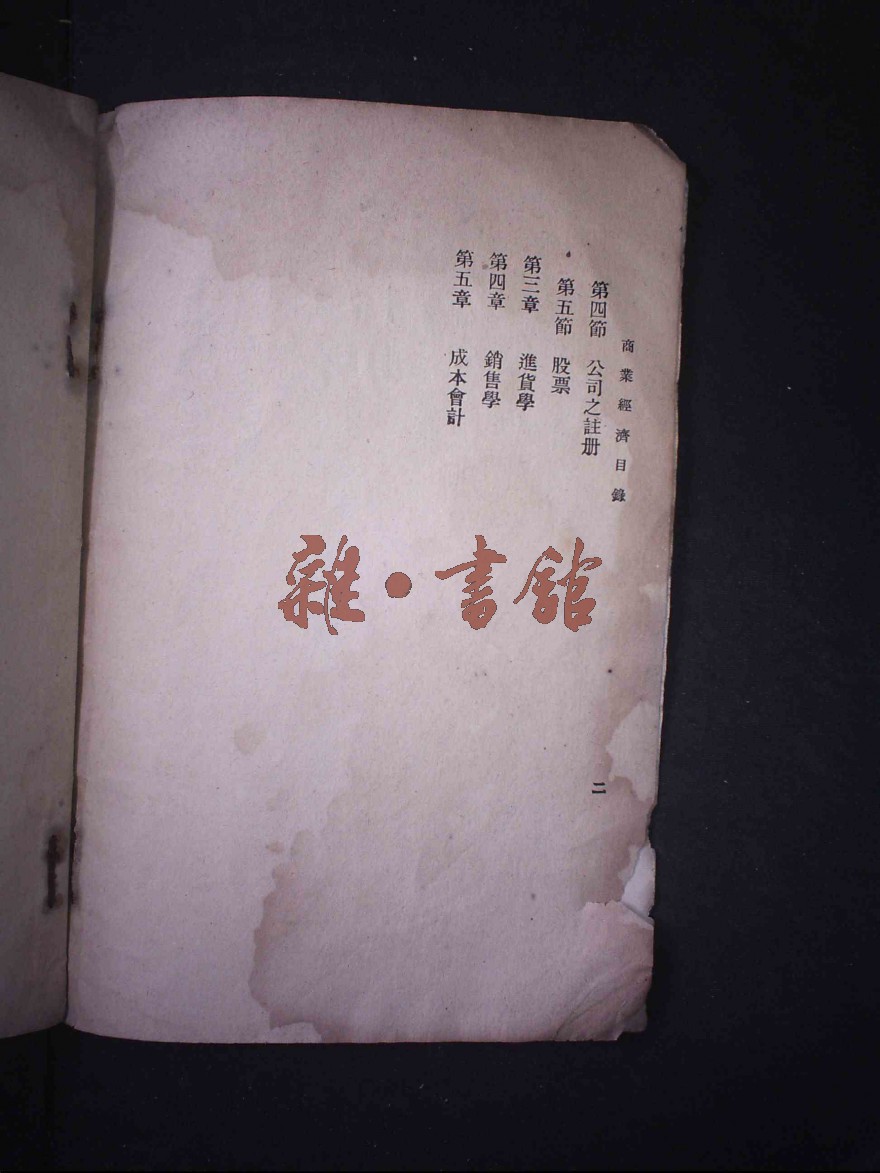 商業經濟目錄
第四節　公司之註册
第五節　股票
第三章　進貨學
第四章　銷售學
第五章　成本會計
二
雜·書館